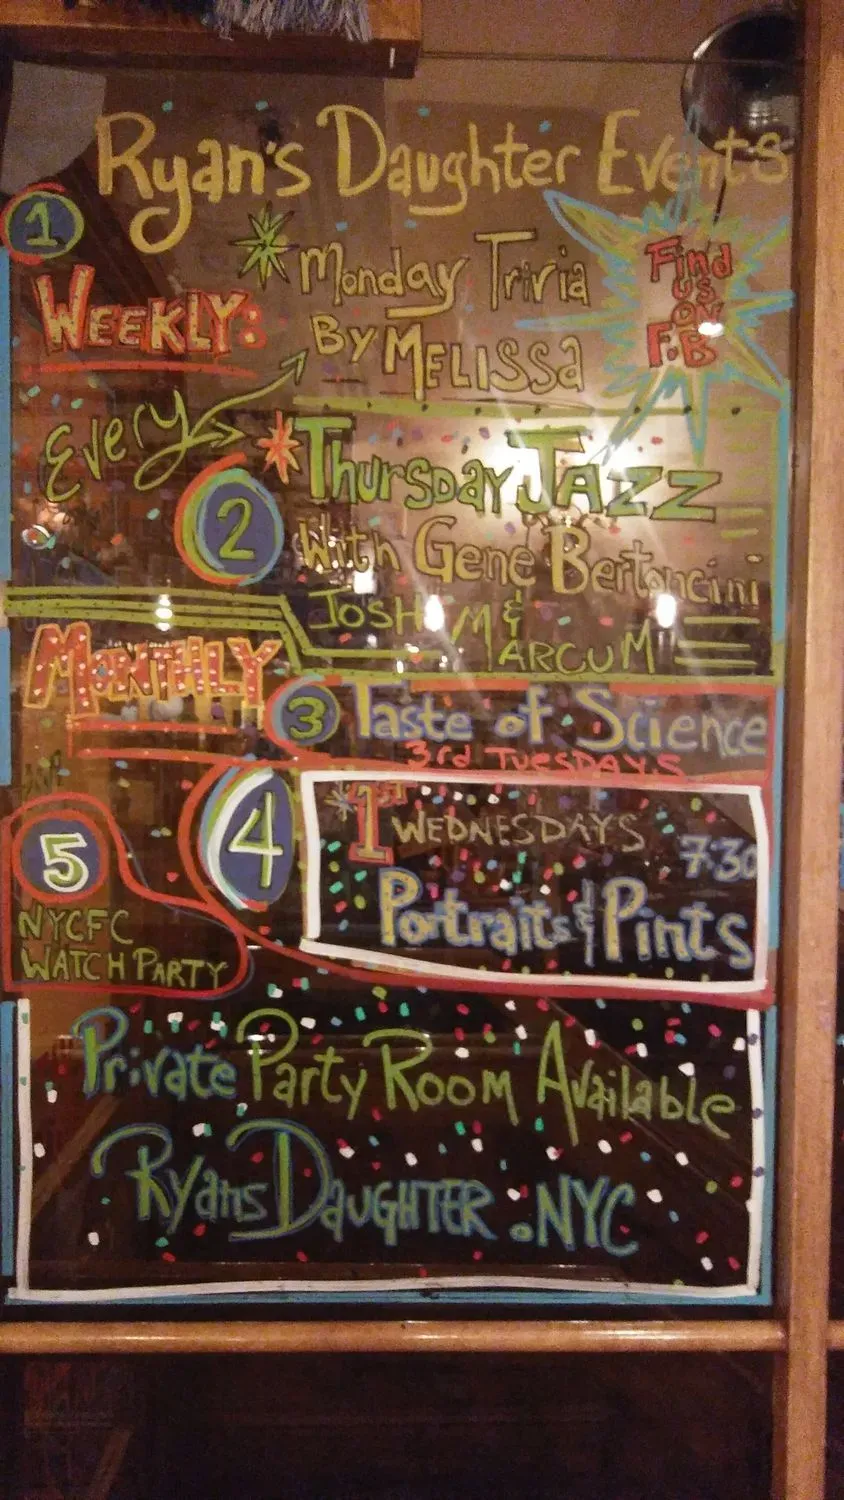 Ryan's Daughter Events
1
WEEKLY:
Monday Trivia
By MELISSA
Find
us
ON
F.B
Every
2
Thursday JAZZ
With Gene Bertoncini
JOSH M &
MARCUM
MONTHLY
3 Taste of Science
3rd TUESDAYS
4
1ST WEDNESDAYS
7:30
Portraits & Pints
5
NYCFC
WATCH PARTY
Private Party Room Available
RyansDaughter.NYC